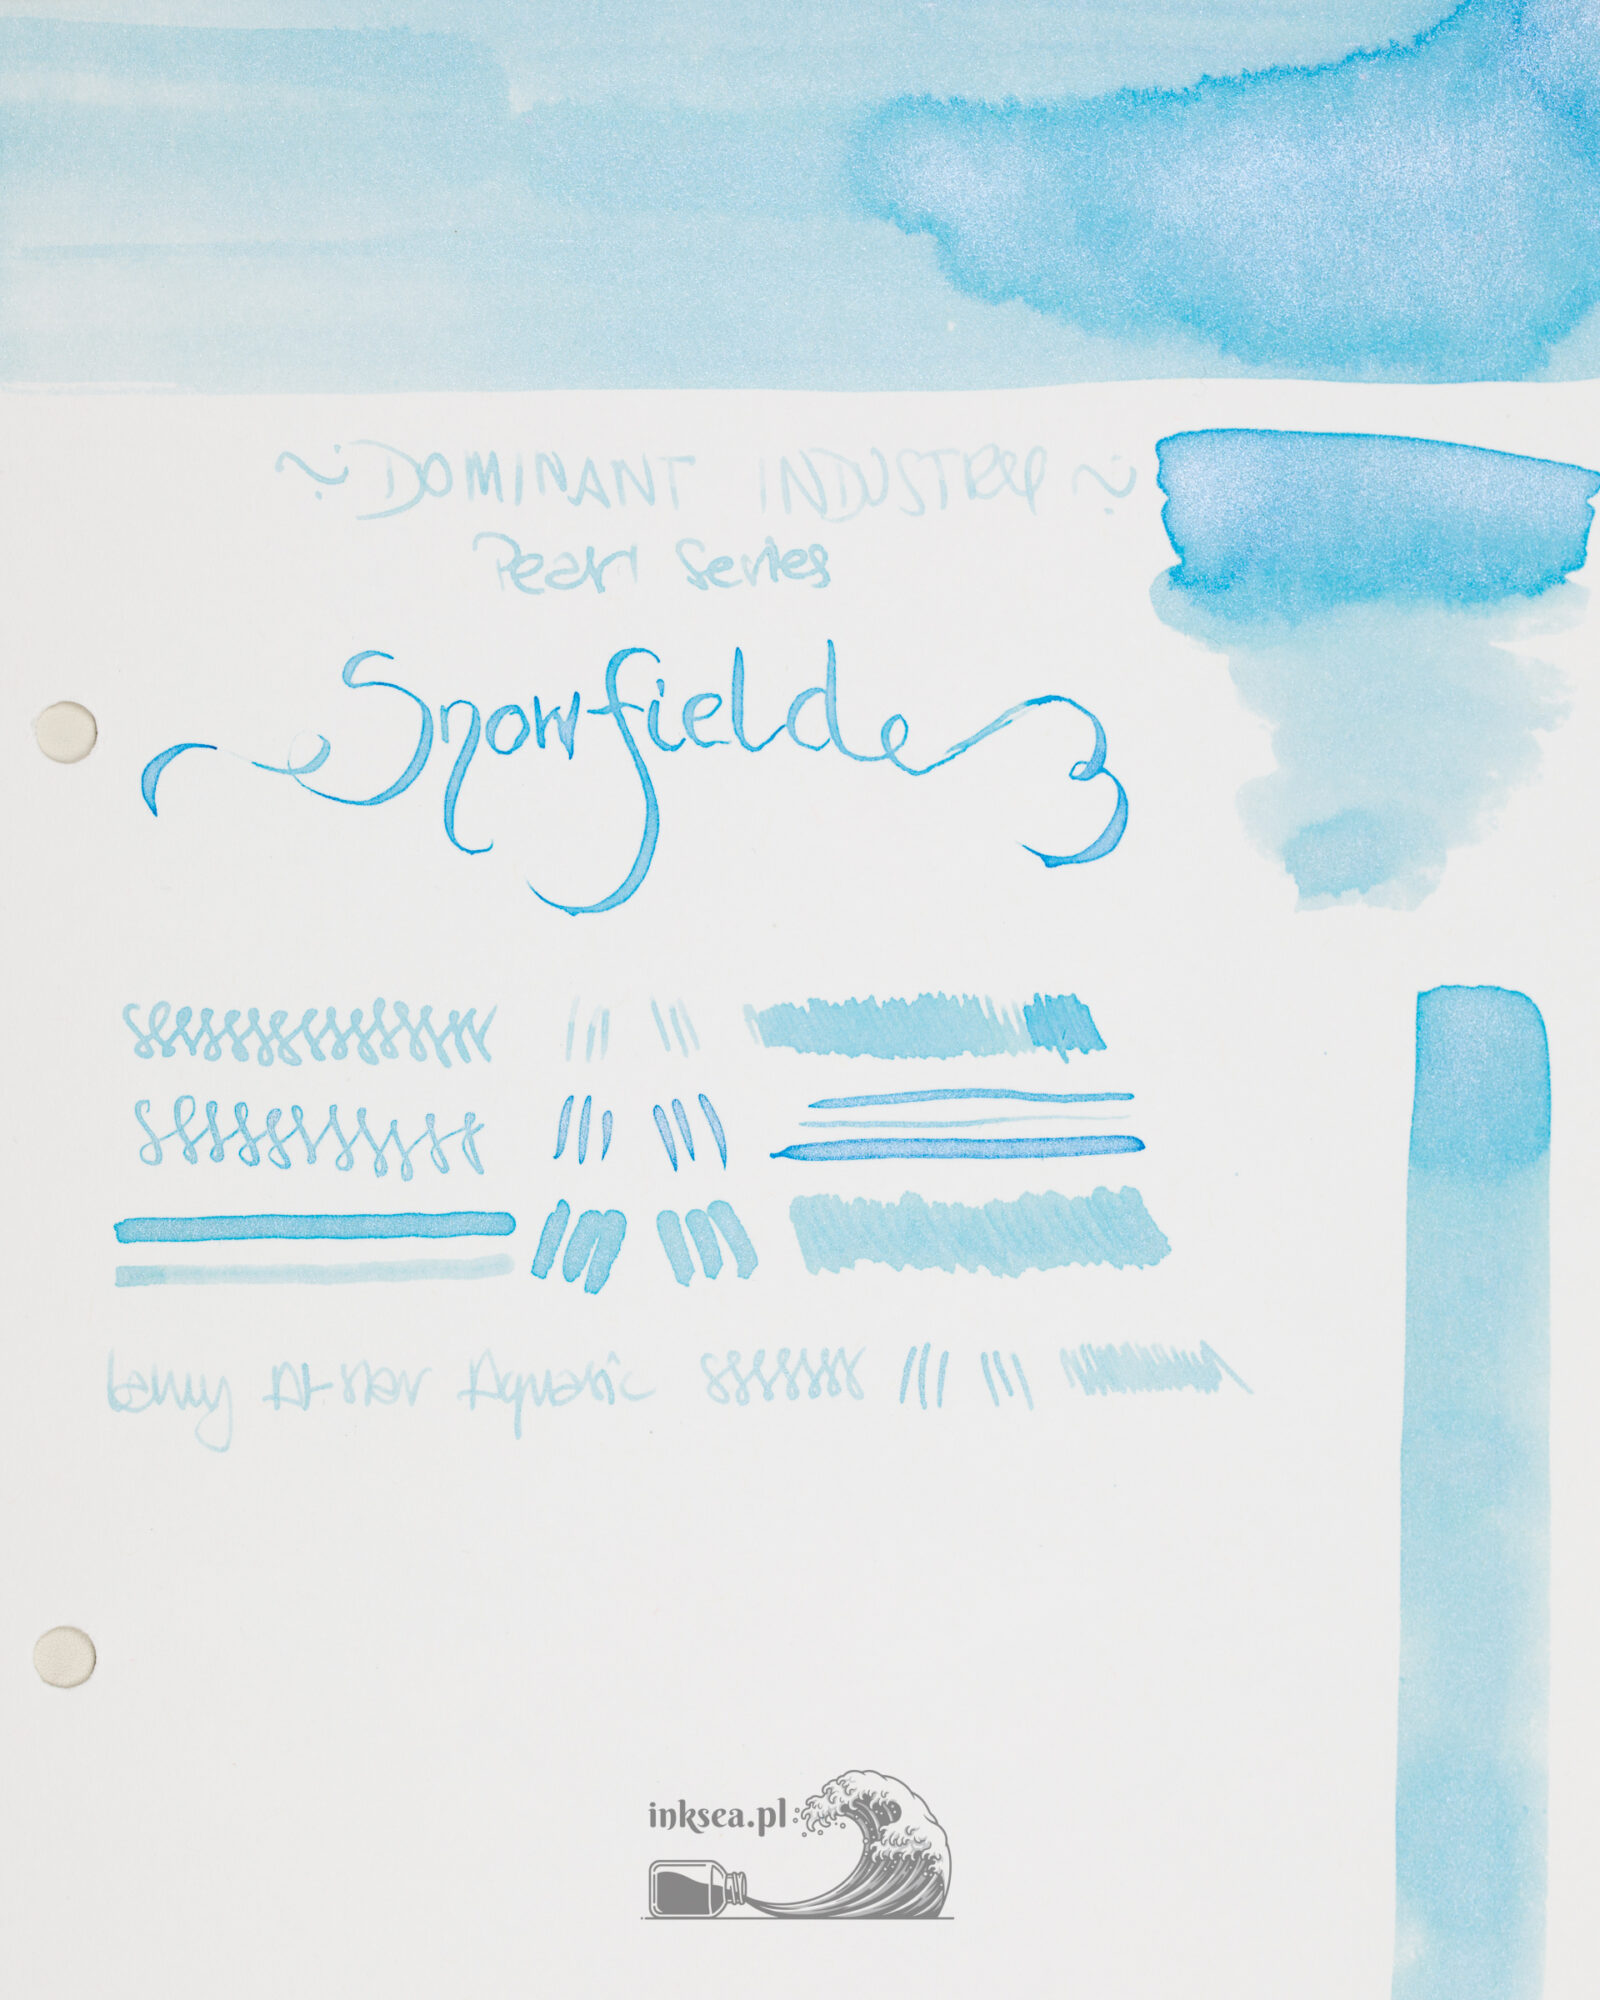 ~ DOMINANT INDUSTRY ~
Pearl Series
Snowfield
Lamy Al-star Aquatic
inksea.pl